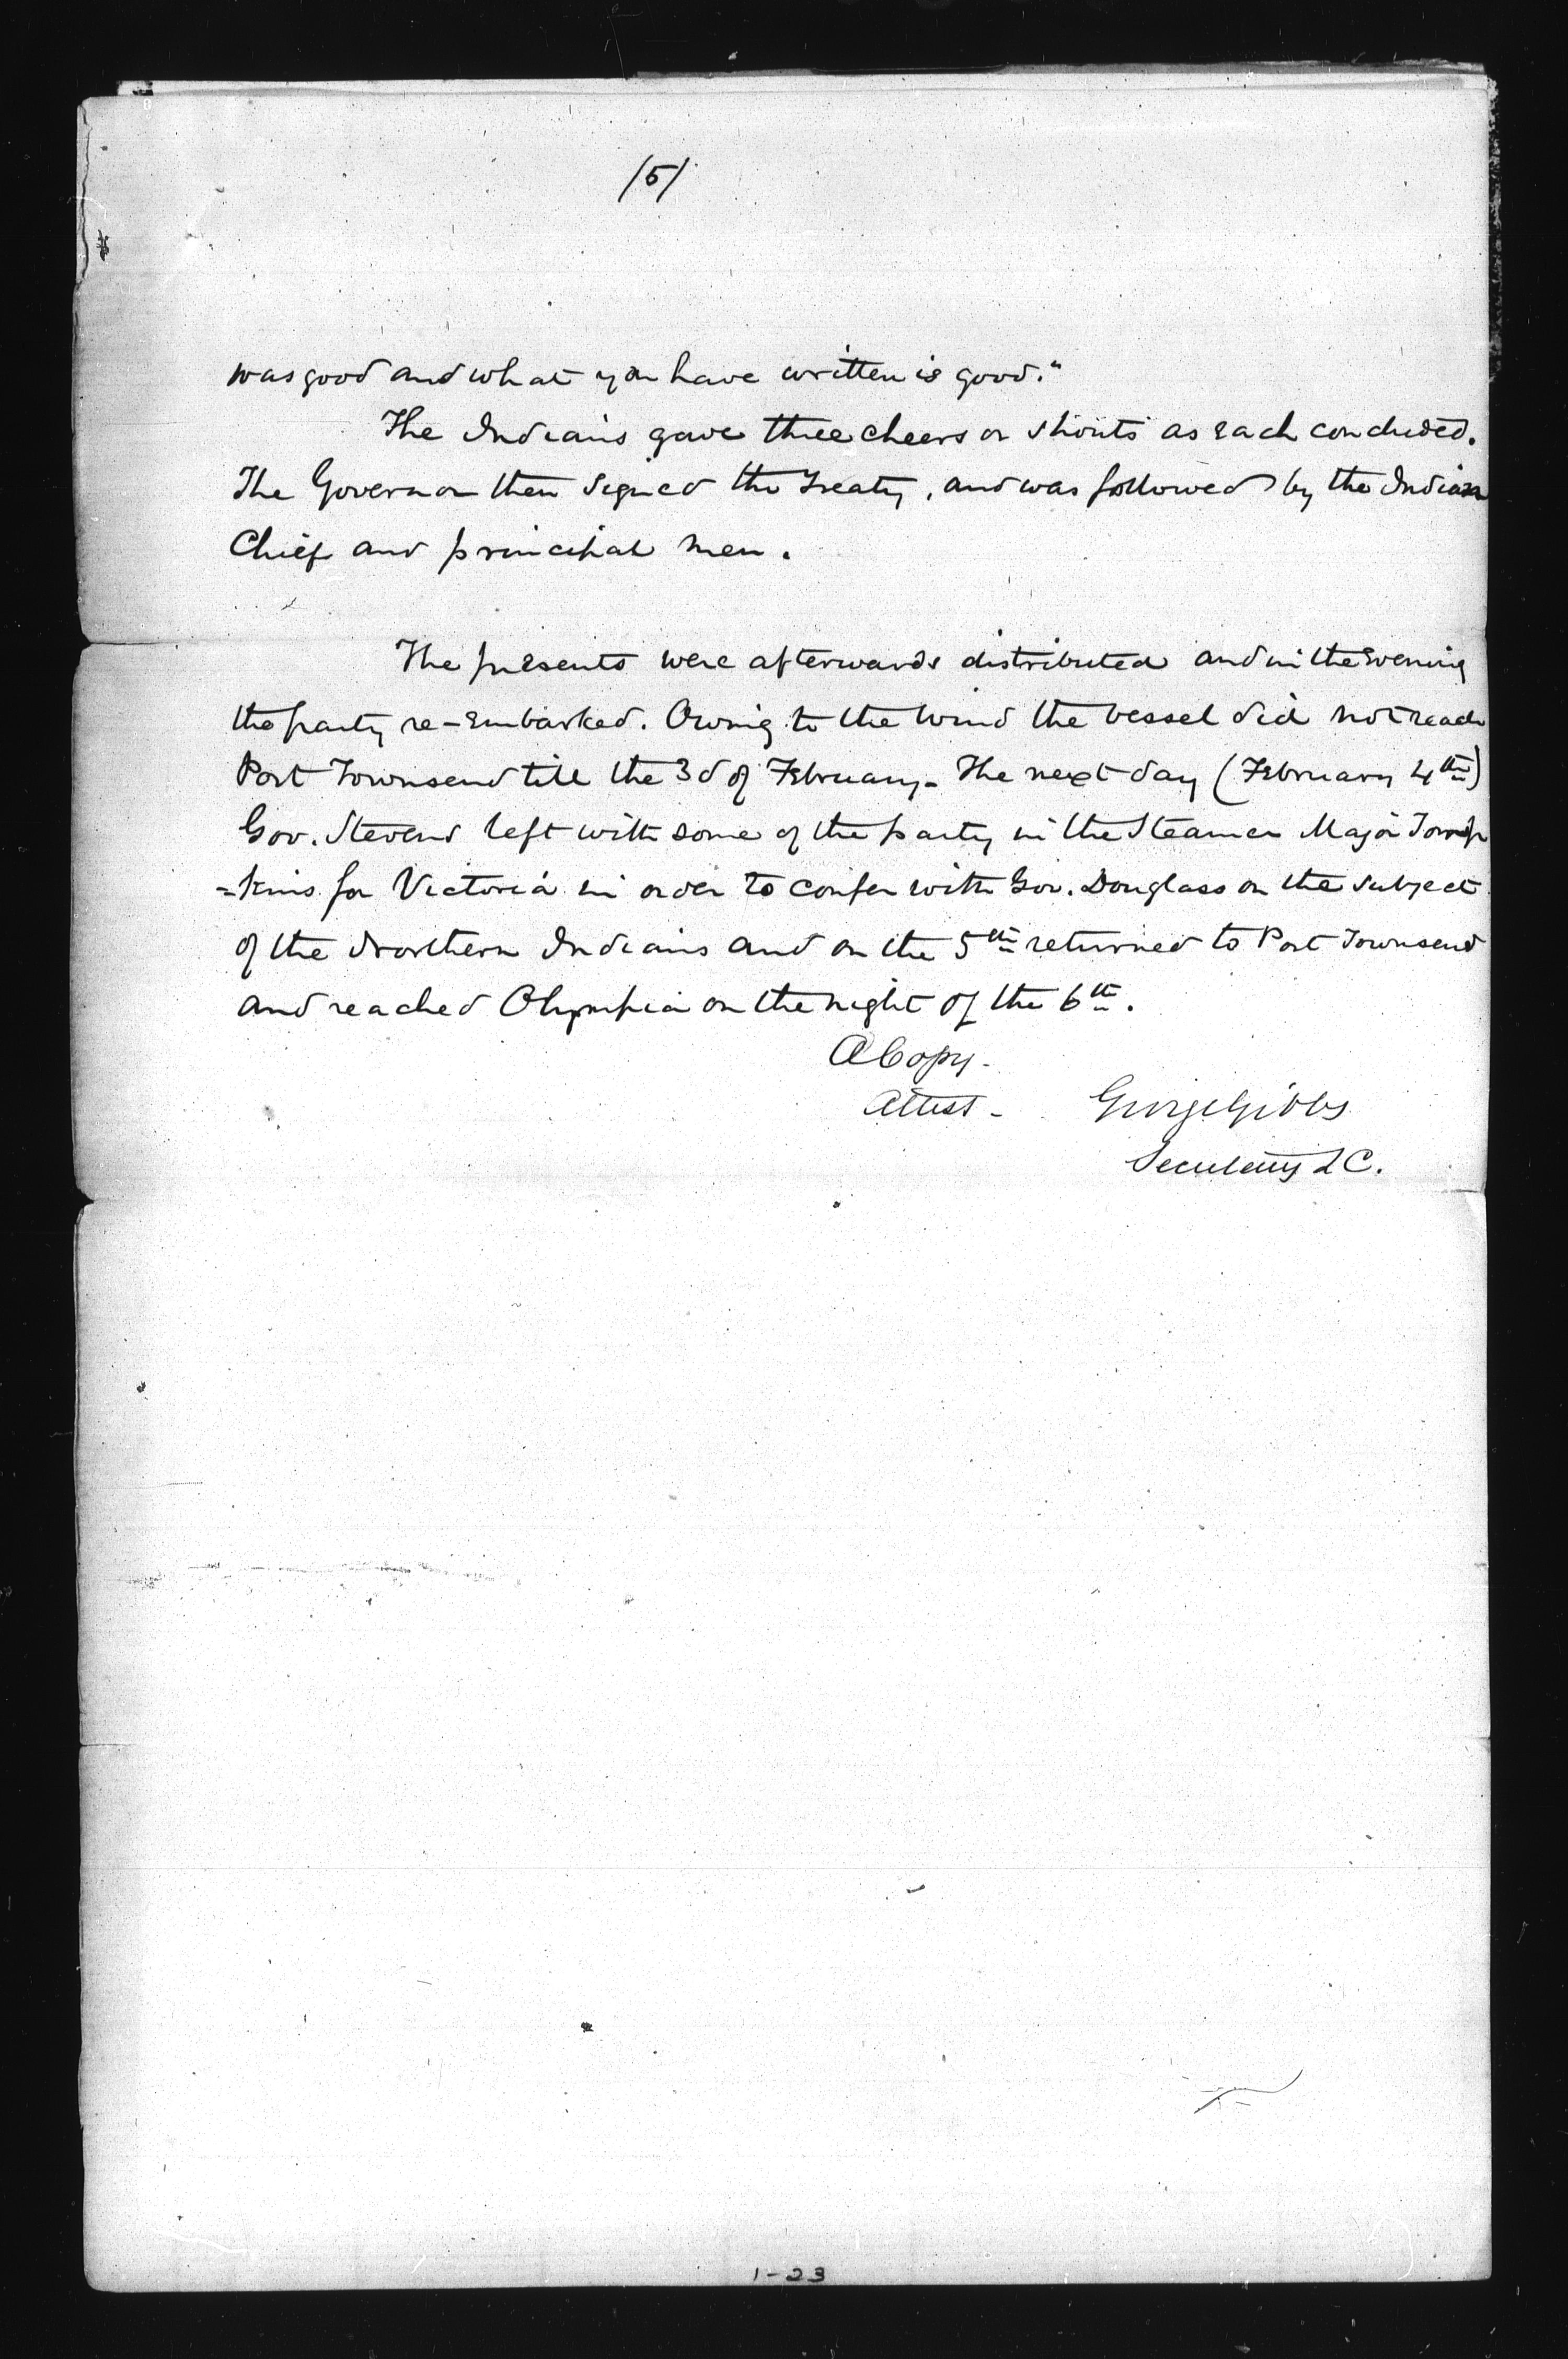 /5/
was good and what you have written is good."
The Indians gave three cheers or shouts as each concluded.
The Governor then signed the Treaty, and was followed by the Indian
Chief and principal men.
The presents were afterwards distributed and in the evening
the party re-embarked. Owing to the wind the vessel did not reach
Port Townsend till the 3d of February. The next day (February 4th)
Gov. Stevens left with some of the party in the Steamer Major Tomp
=kins for Victoria in order to confer with Gov. Douglass on the subject
of the Northern Indians and on the 5th returned to Port Townsend
and reached Olympia on the night of the 6th.
A Copy-
Attest-  George Gibbs
Secretary &C.
1-23